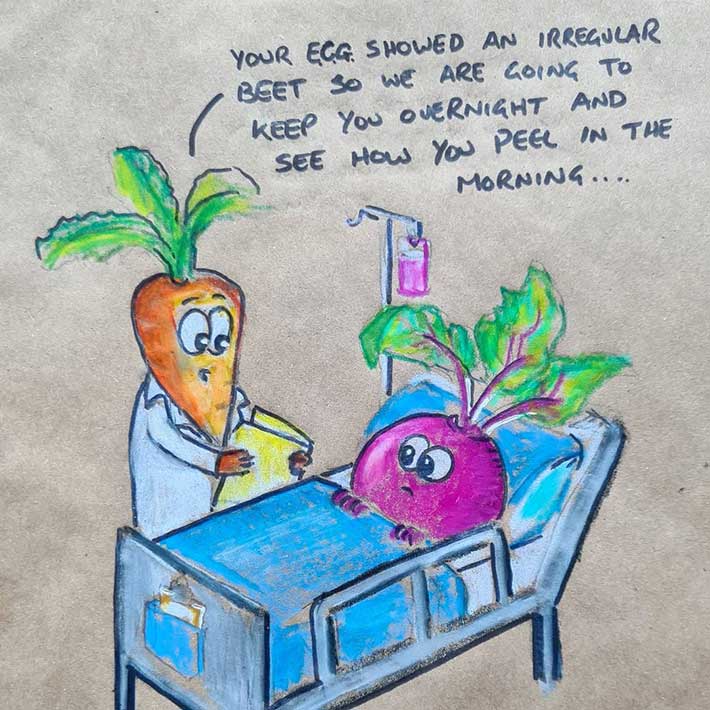 YOUR ECG SHOWED AN IRREGULAR
BEET SO WE ARE GOING TO
KEEP YOU OVERNIGHT AND
SEE HOW YOU PEEL IN THE
MORNING....